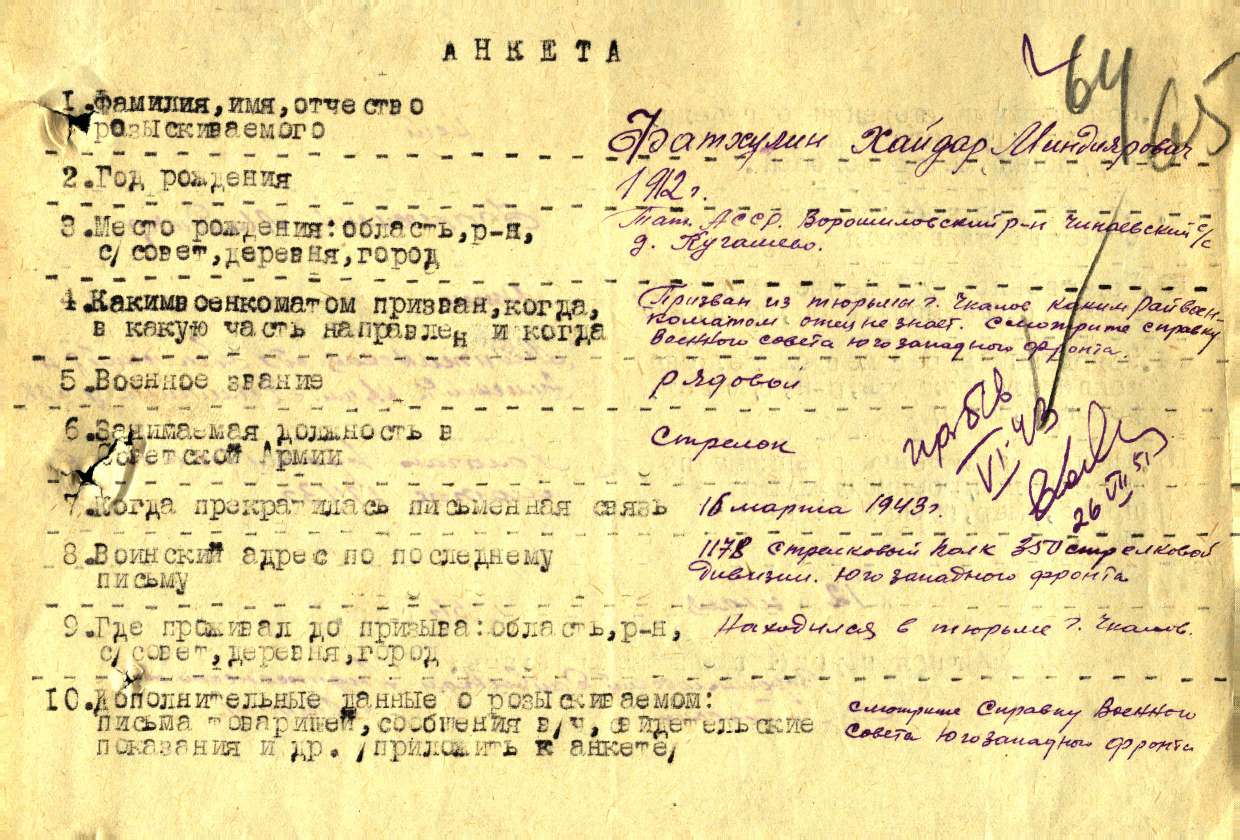 АНКЕТА
64
65
1.Фамилия,имя,отчество
розыскиваемого
Фатхулин Хайдар Миндиярович
2.Год рождения
1912 г.
3.Место рождения:область,р-н,
с/совет,деревня,город
Тат. АССР. Ворошиловский р-н Чинаевский с/с
д. Кугашево.
4.Какимвоенкоматом призван,когда,
в какую часть направлен и когда
Призван из тюрьмы г. Чкалов каким Райвоен-
коматом отец не знает. Смотрите справку
Военного совета югозападного фронта.
5.Военное звание
рядовой
6.Занимаемая должность в
Советской Армии
Стрелок
7.Когда прекратилась письменная связь
16 марта 1943 г.
VI-43
26 VII 51
8.Воинский адрес по последнему
письму
1178 стрелковый полк 350 стрелковой
Дивизии. югозападного фронта
9.Где проживал до призыва:область,р-н,
с/совет,деревня,город
Находился в тюрьме г. Чкалов.
10.Дополнительные данные о розыскиваемом:
письма товарищей,сообщения в/ч,свидетельские
показания и др. /приложить к анкете/
смотрите Справку Военного
совета югозападного фронта